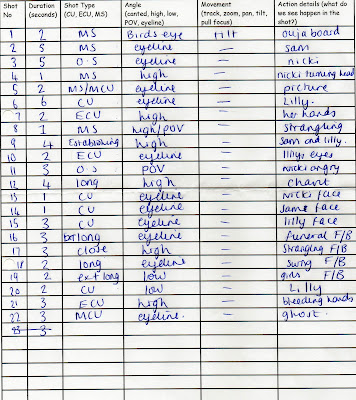 Shot No | Duration (seconds) | Shot Type (CU, ECU, MS) | Angle (canted, high, low, POV, eyeline) | Movement (track, zoom, pan, tilt, pull focus) | Action details (what do we see happen in the shot?)
1 | 2 | MS | Birds eye | tilt | ouija board
2 | 5 | MS | eyeline | — | sam
3 | 5 | O.S | eyeline | — | nicki
4 | 1 | MS | high | — | nicki turning head
5 | 2 | MS/MCU | eyeline | — | picture
6 | 6 | CU | eyeline | — | Lilly.
7 | 2 | ECU | high | — | her hands
8 | 1 | MS | high/POV | — | strangling
9 | 4 | Establishing | high | — | sam and lilly.
10 | 2 | ECU | eyeline | — | lillys eyes
11 | 3 | O.S | POV | — | nicki angry
12 | 4 | long | high | — | chant
13 | 1 | CU | eyeline | — | nicki face
14 | 1 | CU | eyeline | — | sams face
15 | 3 | CU | eyeline | — | lilly face
16 | 3 | long | eyeline | — | funeral F/B
17 | 3 | close | high | — | Strangling F/B
18 | 2 | long | eyeline | — | swing F/B
19 | 2 | ext long | low | — | girls F/B
20 | 2 | CU | low | — | Lilly
21 | 3 | ECU | high | — | bleeding hands
22 | 3 | MCU | eyeline. | — | ghost.
23 | 3